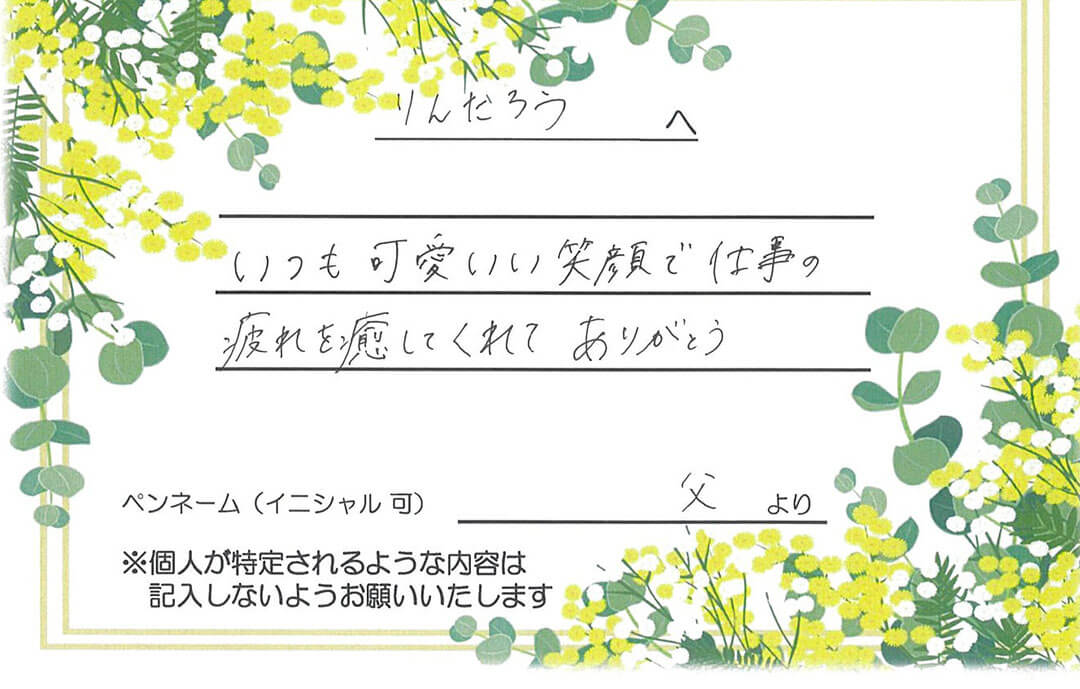 りんたろう へ
いつも 可愛いい 笑顔で 仕事の
疲れを癒してくれて ありがとう
ペンネーム（イニシャル 可） 父 より
※個人が特定されるような内容は
記入しないようお願いいたします